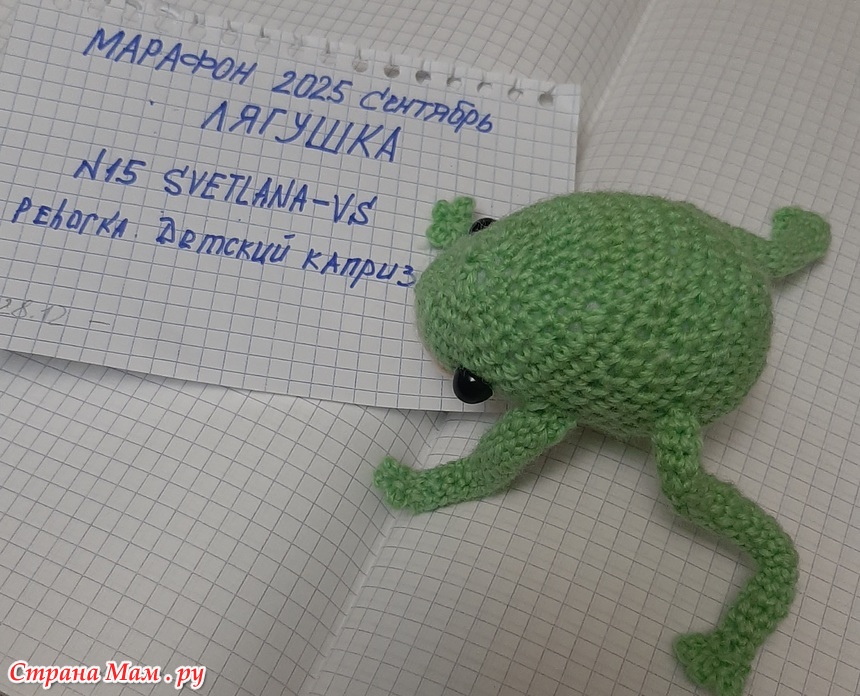 МАРАФОН 2025 Сентябрь
ЛЯГУШКА
N15 SVETLANA-VS
Пехорка. Детский каприз
28.12 -
Страна Мам.ру